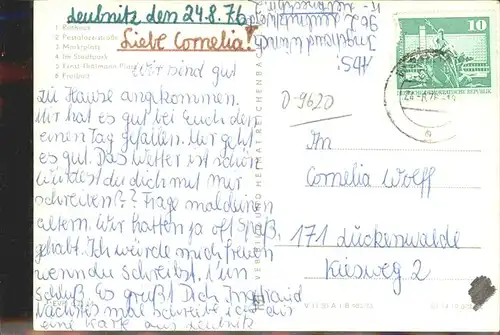 Leubnitz den 24.8.76
Liebe Cornelia!
Wir sind gut
zu Hause angekommen.
Mir hat es gut bei Euch den
einen Tag gefallen. Mir geht
es gut. Das Wetter ist schön
würdest du dich mit mir
schreiben?? Frage mal deinen
Eltern. Wir hatten ja oft Spaß
gehabt. Ich würde mich freuen
wenn du schreibst. Nun
schluß. Es grüßt Dich Ingetraud
Nächstes mal schreibe ich dir
eine Karte aus Leubnitz
1 Rathaus
2 Pestalozzistraße
3 Marktplatz
4 Im Stadtpark
5 Ernst-Thälmann-Platz
6 Freibad
Abs.
D-9620
VERBREITUNG HEIMAT REICHENBACH
10
DEUTSCHE DEMOKRATISCHE REPUBLIK
An
Cornelia Wolff
171 Luckenwalde
Kiesweg 2